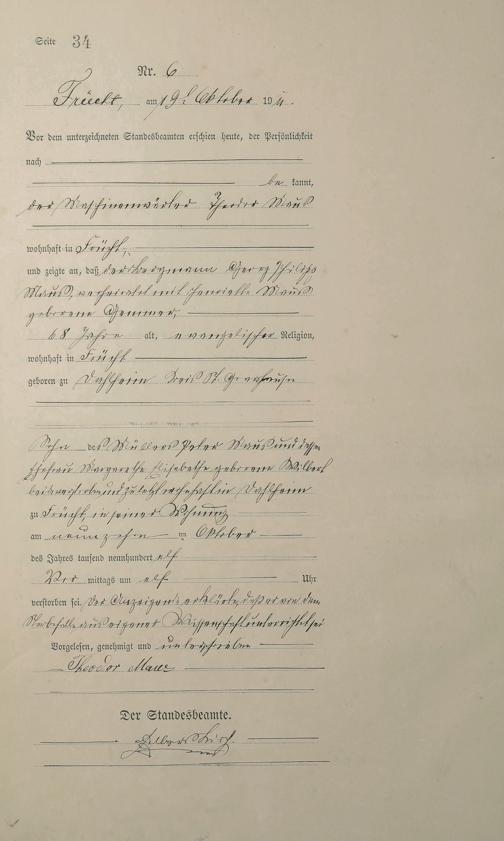 Seite 34
Nr. 6
Frücht, am 19. Oktober 1911.
Vor dem unterzeichneten Standesbeamten erschien heute, der Persönlichkeit
nach
be kannt,
der Maschinenwärter Theodor Maus
wohnhaft in Frücht,
und zeigte an, daß der Bergmann Georg Philipp
Maus, verheiratet mit Henriette Maus
geborene Gemmer,
68 Jahre alt, evangelischer Religion,
wohnhaft in Frücht
geboren zu Dahlheim Kreis St. Goarshausen
Sohn des Müllers Peter Maus und dessen
Ehefrau Margarethe Elisabethe geborene
beide verstorben und zuletzt wohnhaft in Dahlheim
zu Frücht, in seiner Wohnung
am neunzehn ten Oktober
des Jahres tausend neunhundert elf
Vor mittags um elf Uhr
verstorben sei. Der Anzeigende erklärte, daß er von dem
Sterbefalle aus eigener Wissenschaft unterrichtet sei
Vorgelesen, genehmigt und unterschrieben
Theodor Maus
Der Standesbeamte.